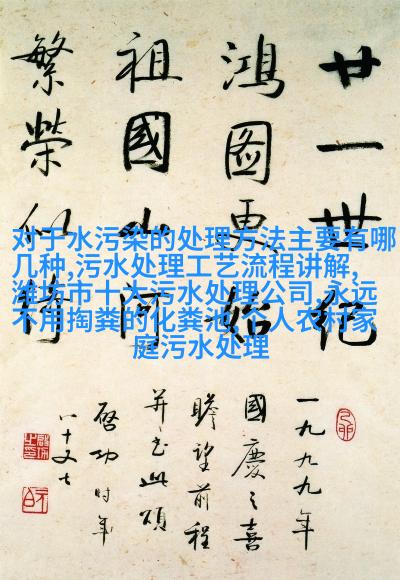 廿一世纪
鸿图更始
祖國山河
繁榮似绮
一九九九年
國慶之喜
瞻望前程
并书此頌
启功时年
八十又七
对于水污染的处理方法主要有哪
几种,污水处理工艺流程讲解,
潍坊市十大污水处理公司,永远
不用掏粪的化粪池,个人农村家
庭污水处理